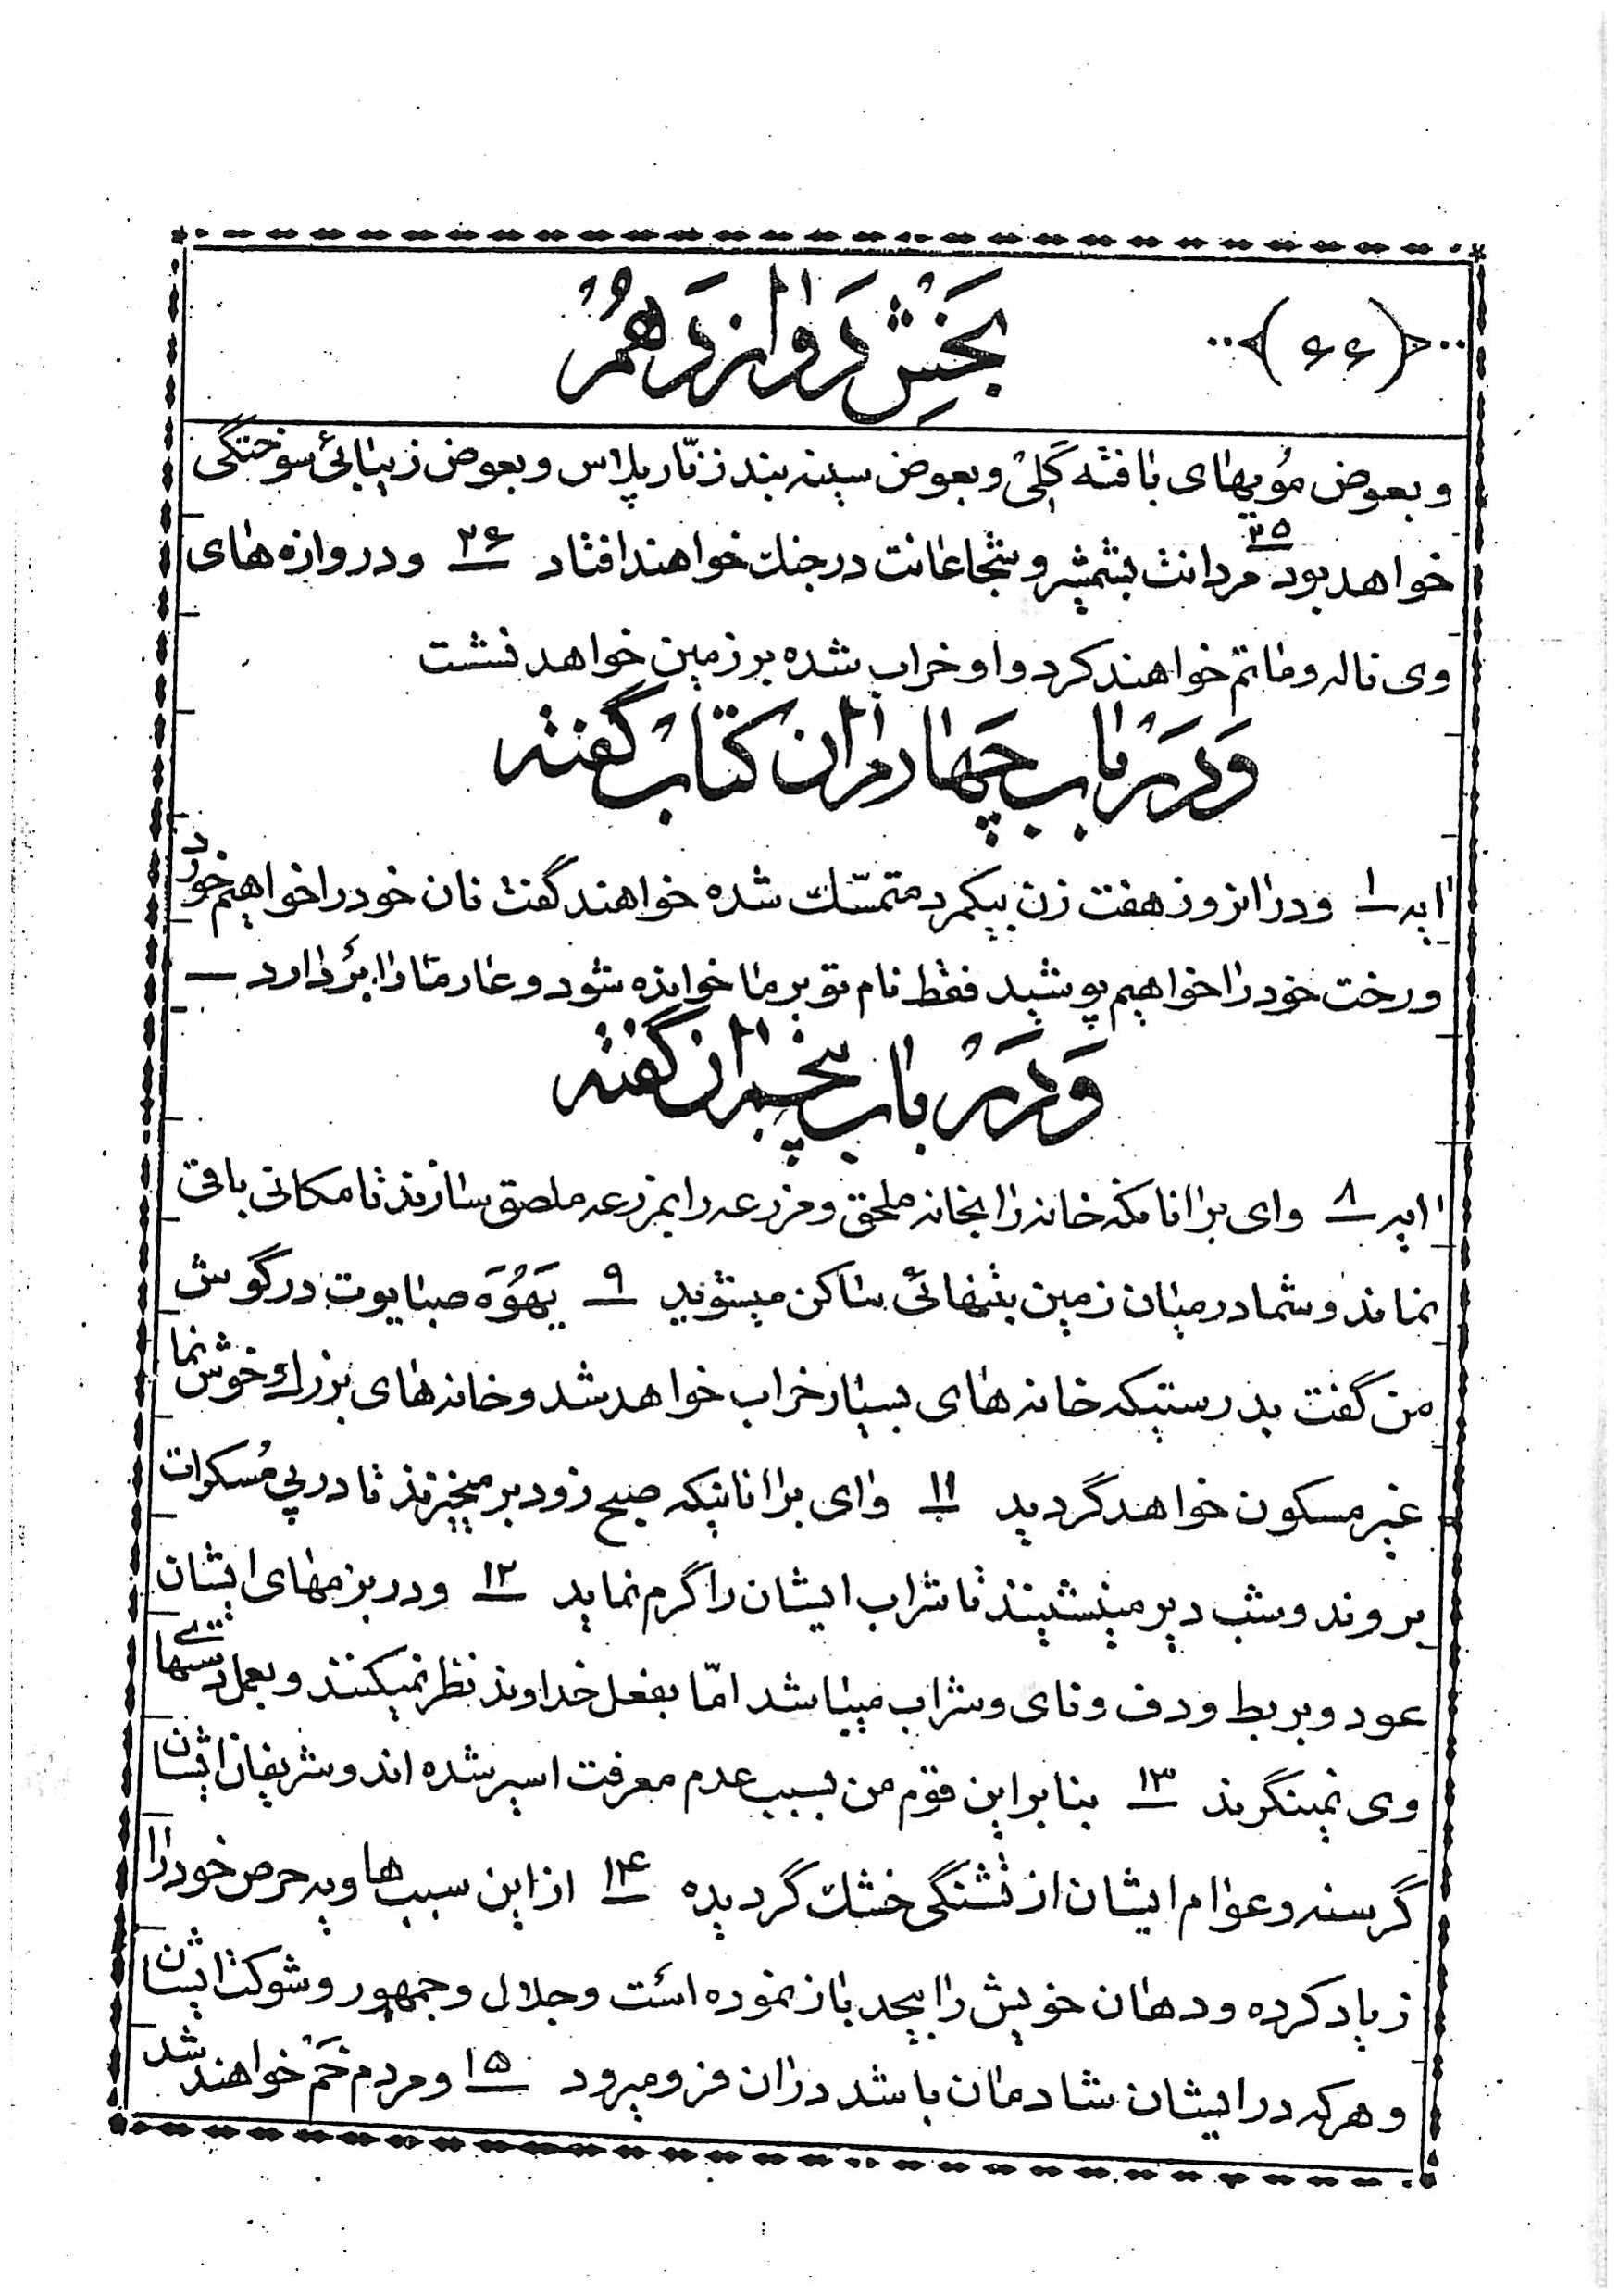 بخش دوازدهم
(۶۶)
و بعوض مُویهای بافته کَلی و بعوض سینه بند زنّار پلاس و بعوض زیبائی سوختگی
خواهد بود ۲۵ مردانت بشمشیر و شجاعانت در جنك خواهند افتاد ۲۶ و دروازه های
وی ناله و ماتم خواهند کرد و او خراب شده بر زمین خواهد نشست
وَدَر باب چَهارم از ان کتاب گفته
ایه ۱ و در انروز هفت زن بیکمرد متمسّك شده خواهند گفت نان خود را خواهیم خورد
و رخت خود را خواهیم پوشید فقط نام تو بر ما خوانده شود و عار ما را بردارد —
وَدَر باب پنجم از ان گفته
ایه ۸ وای بر انانکه خانه را بخانه ملحق و مزرعه را بمزرعه ملصق سازند تا مکانی باقی
نماند و شما در میان زمین بتنهائی ساکن میشوید ۹ یَهُوَه صبایوت در گوش
من گفت بدرستیکه خانه های بسیار خراب خواهد شد و خانه های بزرك و خوش نما
غیر مسکون خواهد گردید ۱۱ وای بر انانیکه صبح زود بر میخیزند تا در پی مُسکرات
بروند و شب دیر مینشینند تا شراب ایشان را گرم نماید ۱۲ و در بزمهای ایشان
عود و بربط و دف و نای و شراب میباشد امّا بفعل خداوند نظر نمیکنند و بعمل دستهای
وی نمینگرند ۱۳ بنا براین قوم من بسبب عدم معرفت اسیر شده اند و شریفان ایشان
گرسنه و عوام ایشان از تشنگی خشك گردیده ۱۴ از این سبب هاویه حرص خود را
زیاد کرده و دهان خویش را بیحد باز نموده است و جلال و جمهور و شوکت ایشان
و هر که در ایشان شادمان باشد در ان فرو میرود ۱۵ و مردم خَم خواهند شد